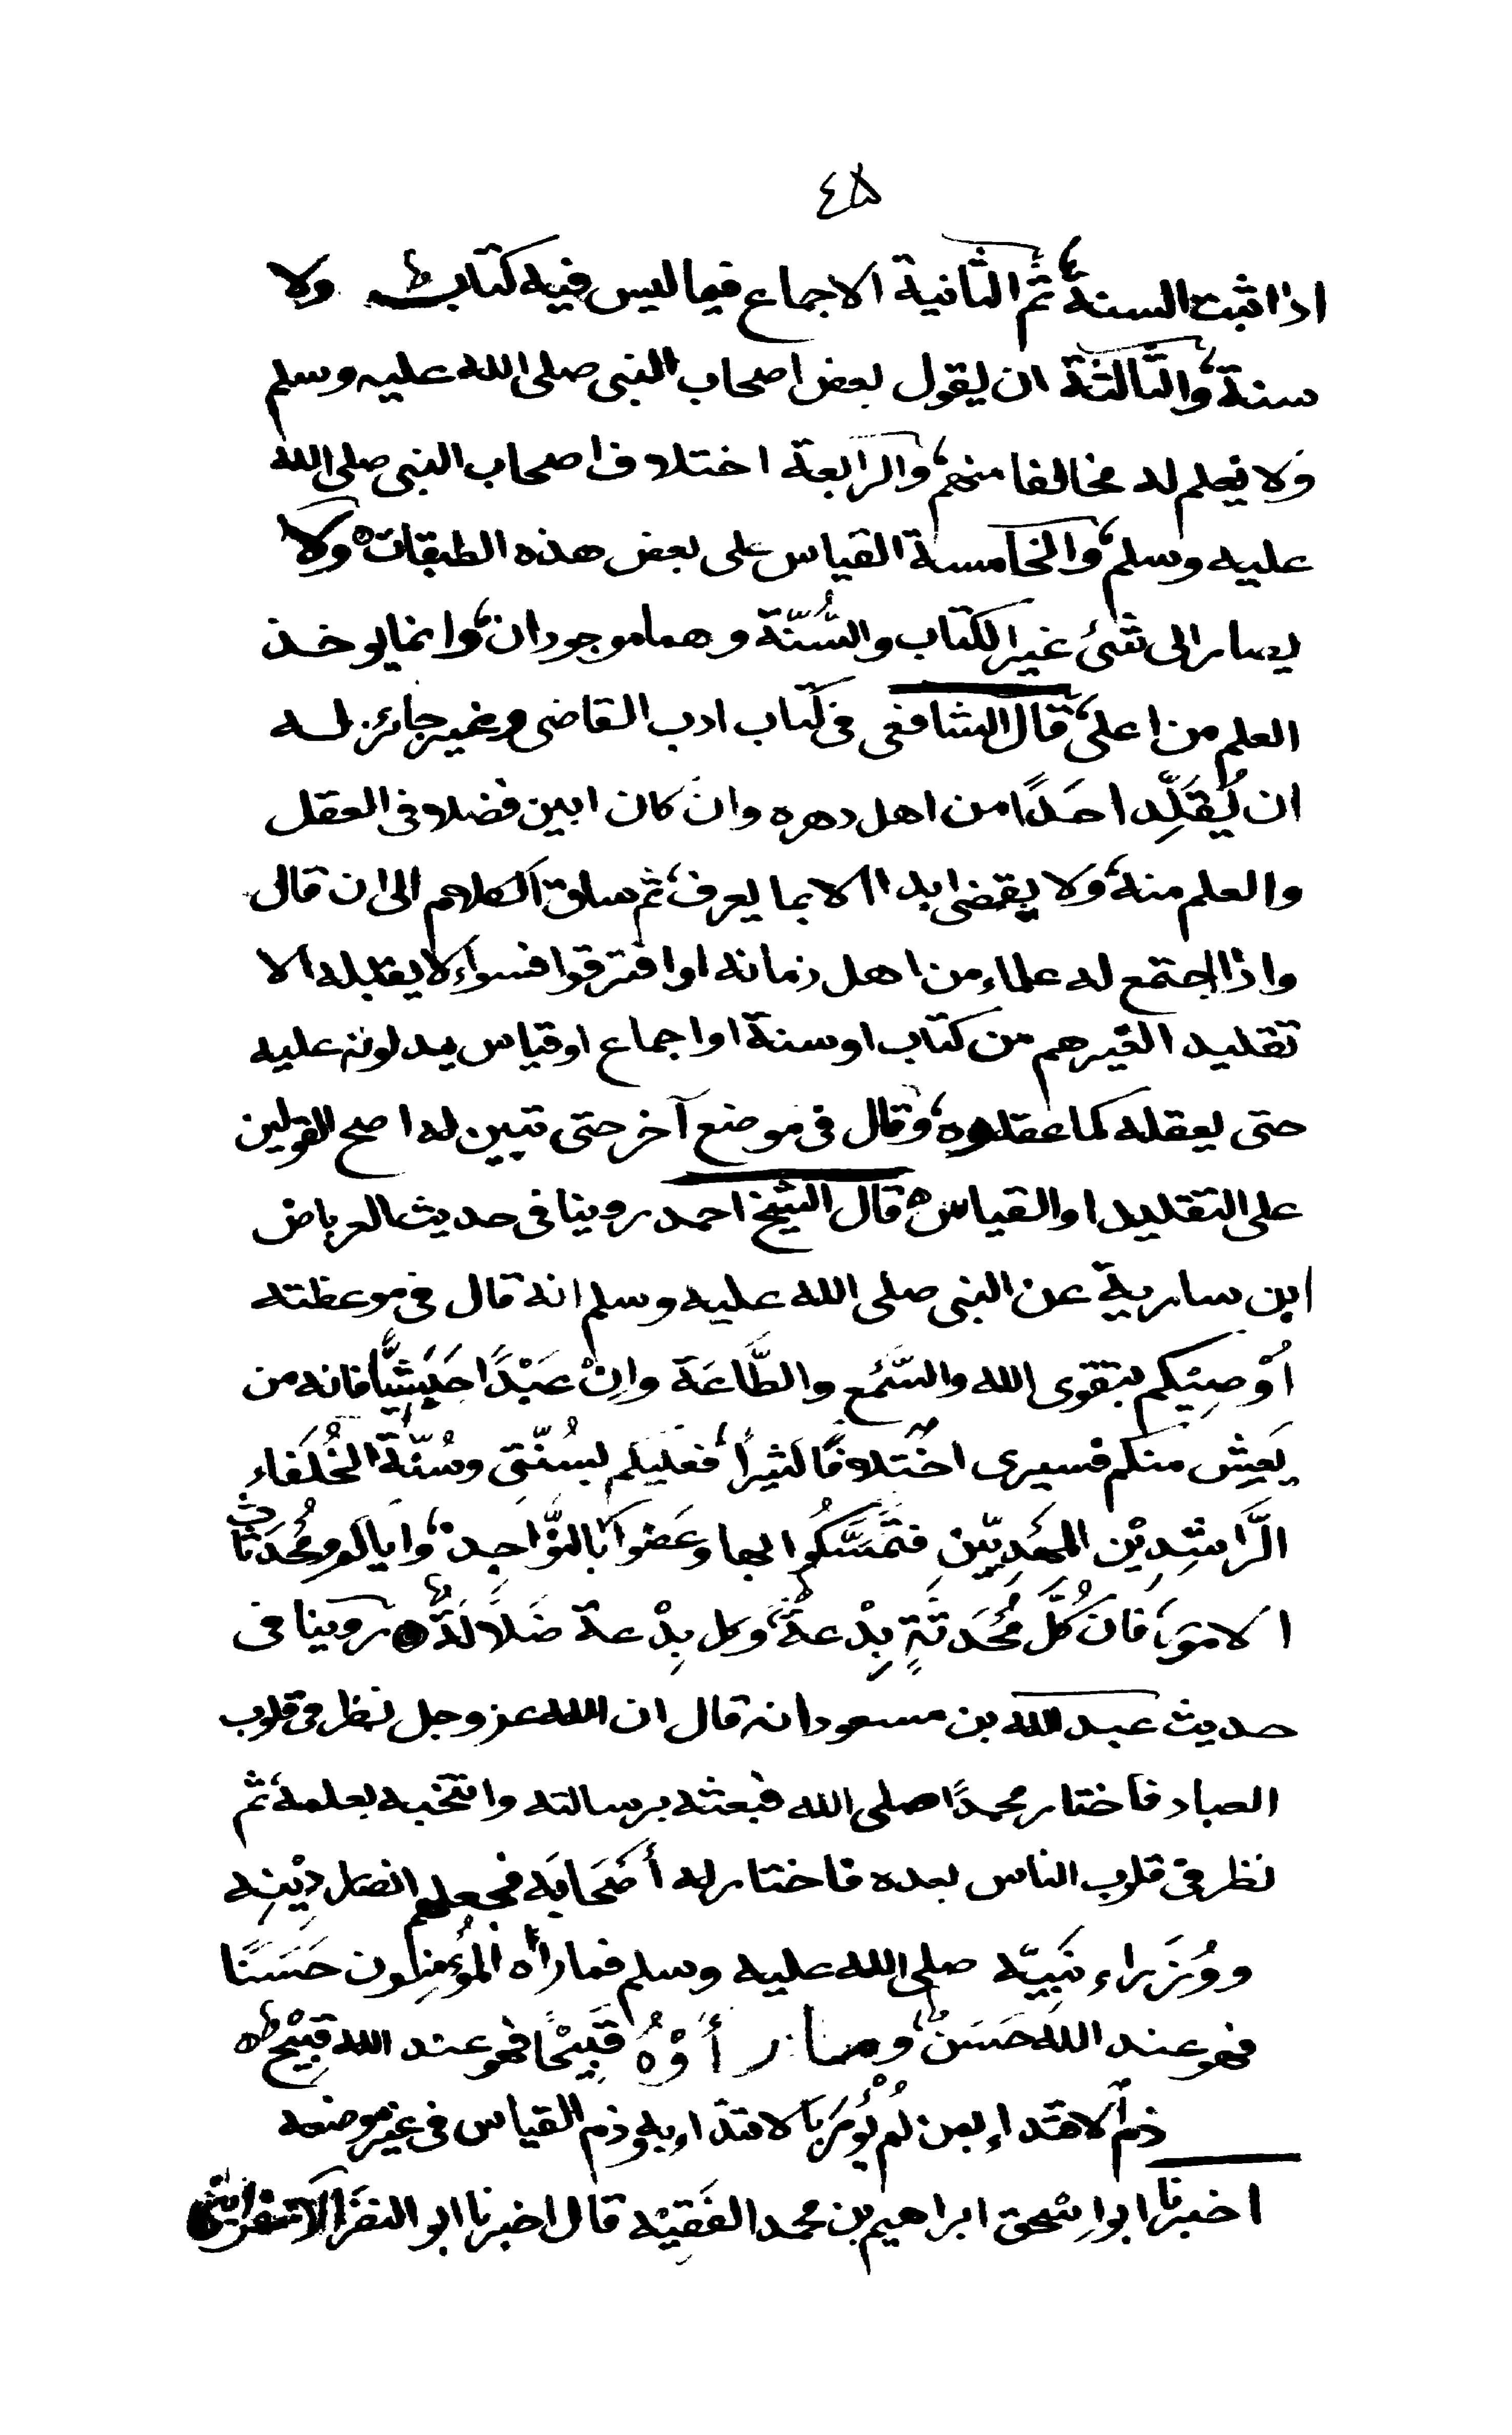 ٤٥
اذا ثبت السنة، ثم الثانية الاجماع فيما ليس فيه كتاب ولا
سنة، والثالثة ان يقول بعض اصحاب النبى صلى الله عليه وسلم
ولا يعلم له مخالفا منهم، والرابعة اختلاف اصحاب النبى صلى الله
عليه وسلم، والخامسة القياس على بعض هذه الطبقات ولا
يصار الى شئ غير الكتاب والسُّنّة وهما موجودان، وانما يوخذ
العلم من اعلى، قال الشافعى فى كتاب ادب القاضى وغير جائز له
ان يُقَلِّد احَدًا من اهل دهره وان كان ابين فضلا فى العقل
والعلم منه، ولا يقضى ابدا الا بما يعرف، ثم ساق الكلام الى ان قال
واذا اجتمع له علماء من اهل زمانه او افترقوا فسواء لا يقبله الا
تقليد الغيرهم من كتاب او سنة او اجماع او قياس يدلونه عليه
حتى يعقله كما عقلوه، وقال فى موضع آخر حتى تبين له اصح القولين
على التقليد او القياس ه قال الشيخ احمد روينا فى حديث العرباض
ابن سارية عن النبى صلى الله عليه وسلم انه قال فى موعظته
أُوْصِيْكم بتقوى الله والسَّمْع والطَّاعَة وانْ عَبْدًا حَبَشِيًّا فانه من
يَعِيش منكم فسيرى اخْتلافًا كثيرًا، فعليكم بسُنّتى وسُنّة الخُلَفاء
الرَّاشِدِيْن المَهْدِيّيْن فتَمَسَّكُوا بها وعَضوا بالنَّواجِذ، واياكم ومُحْدَثات
الامور، فان كُلَّ مُحْدَثَةٍ بِدْعةٌ، وكل بِدْعة ضَلَالَةٌ ه روينا فى
حديث عبد الله بن مسعود انه قال ان الله عز وجل نظر فى قلوب
العباد فاختار محمدًا صلى الله فبعثه برسالته وانتخبه بعلمه، ثم
نظر فى قلوب الناس بعده فاختار له أصْحَابَه فجعلهم انصار دِيْنِه
ووُزَراء نَبِيّه صلى الله عليه وسلم فما رآه المُؤمِنون حَسَنًا
فهو عند الله حَسَنٌ، وما رأَوْهُ قَبِيْحًا فهو عند الله قبِيْحٌ ه
ذم الاقتداء بمن لم يُؤمَر بالاقتداء به وذم القياس فى غير موضعه
اخبرنا ابو اسْحق ابراهيم بن محمد الفَقِيْه قال اخبرنا ابو النضر